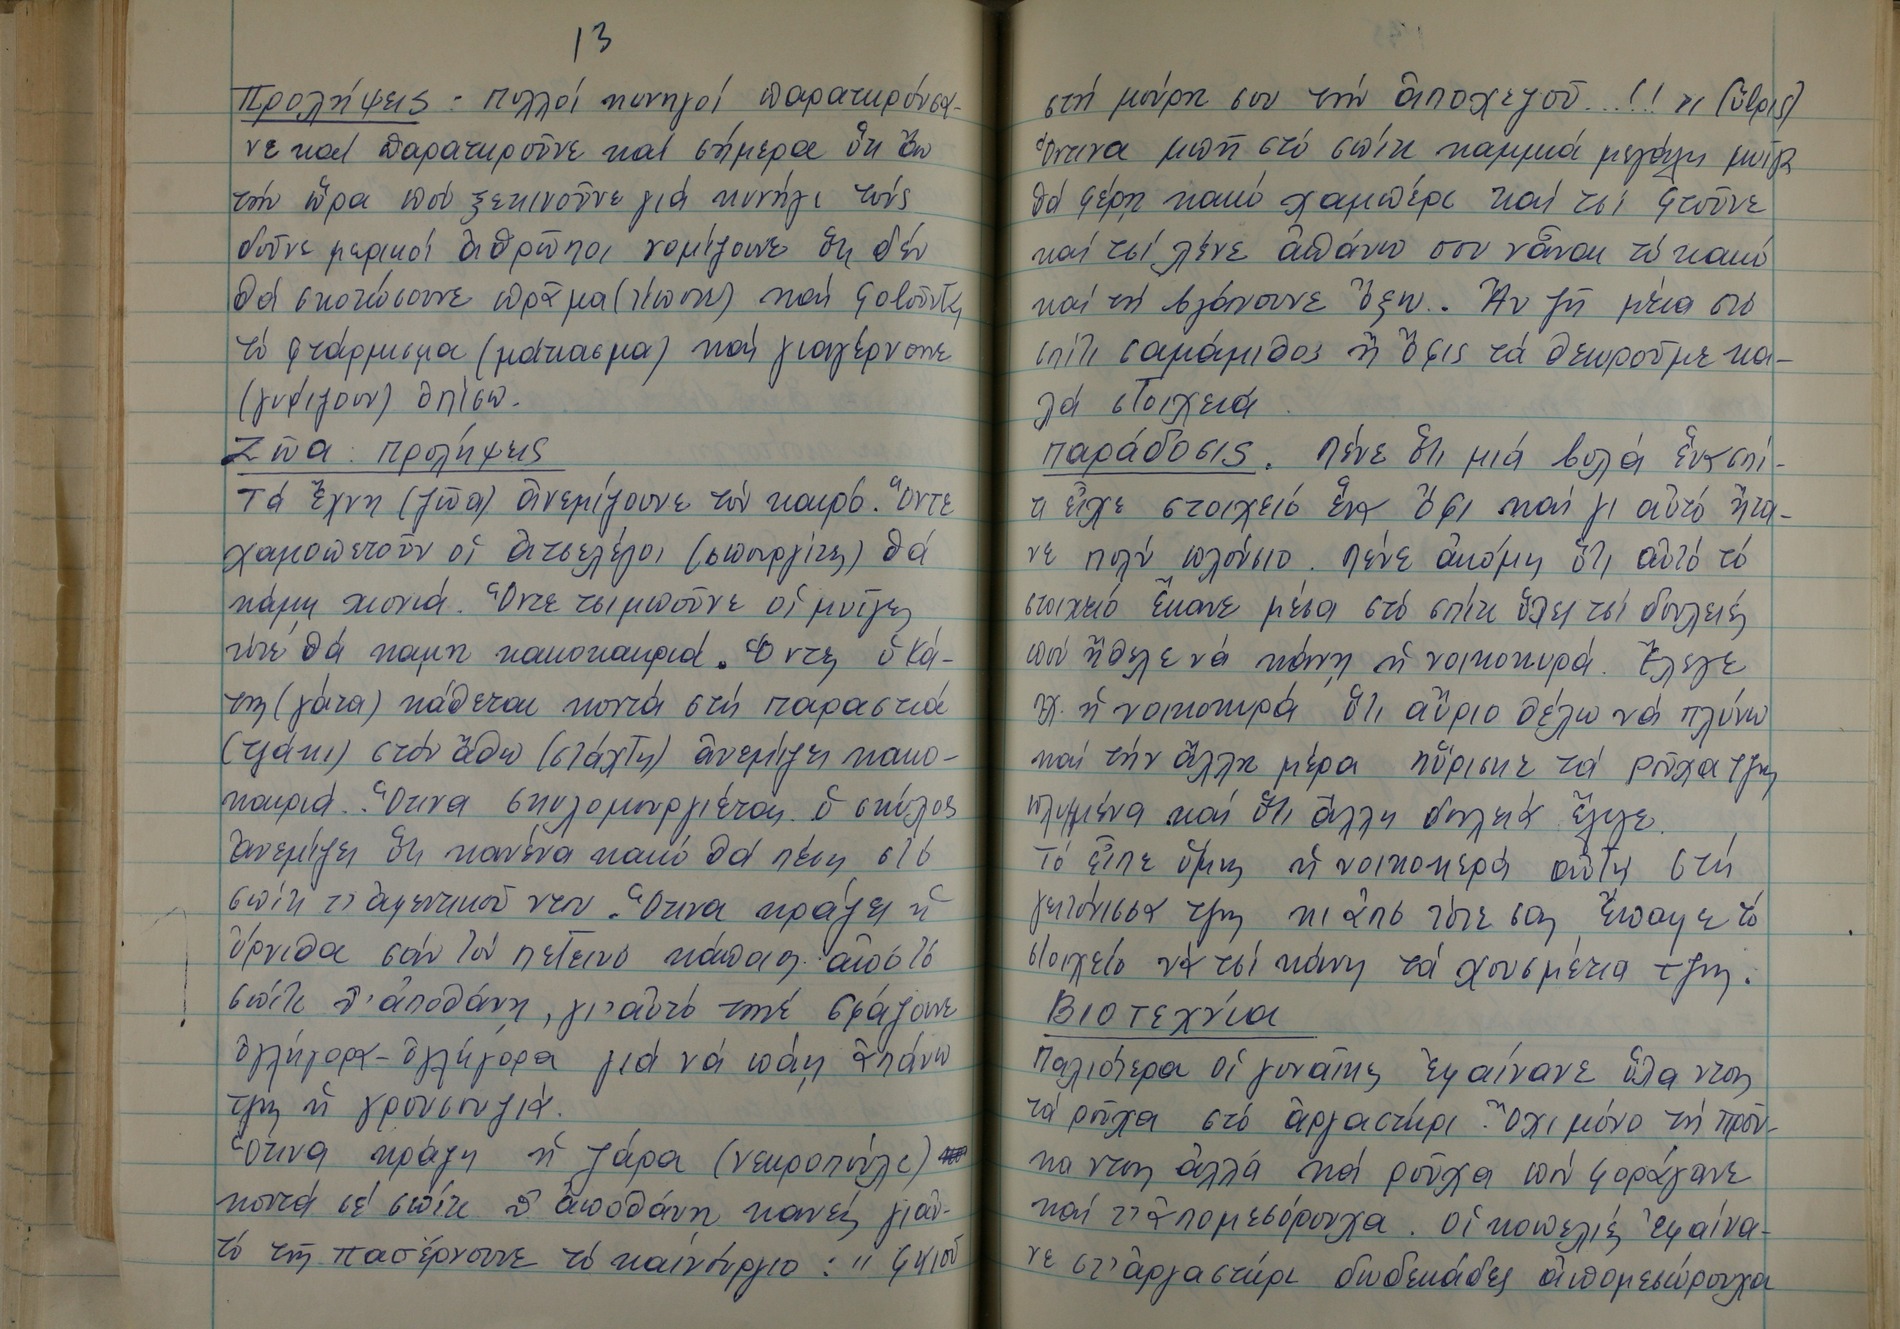 13
Προλήψεις : Πολλοί κυνηγοί παρατηρούσα-
νε καί παρατηροῦνε καί σήμερα ὅτι ἄν
τήν ὥρα πού ξεκινοῦνε γιά κυνήγι τούς
δοῦνε μερικοί ἀθρῶποι νομίζουνε ὅτι δέν
θά σκοτώσουνε πρᾶμα (τίποτε) καί φοβοῦνται
τό φτάρμισμα (μάτιασμα) καί γιαγέρνουνε
(γυρίζουν) ὀπίσω.
Ζῶα : Προλήψεις
Τά ἔχνη (ζῶα) ἀνεμίζουνε τόν καιρό. Ὅντε
χαμοπετοῦν οἱ ἀτσελέγοι (σπουργίτες) θά
κάμη χιονιά. Ὅντε τσιμποῦνε οἱ μυῖγες
τότε θά καμη κακοκαιριά. Ὅντες ὁ κά-
της (γάτα) κάθεται κοντά στή παραστιά
(τζάκι) στόν ἄθω (στάχτη) ἀνεμίζει κακο-
καιριά. Ὅτινα σκυλομουργιέται ὁ σκύλος
ἀνεμίζει ὅτι κανένα κακό θά πέση στό
σπίτι τ' ἀφεντικοῦ ντου. Ὅτινα κράζει ἡ
ὄρνιθα σάν τόν πετεινό κάποιος ἀπό τό
σπίτι θ' ἀποθάνη, γι' αὐτό τηνέ σφάζουνε
ὀγλήγορα-ὀγλήγορα γιά νά πάη ἀπάνω
τζη ἡ γρουσουζιά.
Ὅτινα κράζη ἡ ζάρα (νεκροπούλι)
κοντά σέ σπίτι θ' ἀποθάνη κανείς γιαὐ-
τό τῆ πασέρνουνε τό καινούργιο : " φτιοῦ
στή μούρη σου τήν ἀποχεζοῦ...!!" (ὕβρις)
Ὅντινα μπῆ στό σπίτι καμμιά μεγάλη μυῖγα
θά φέρη κακό χαμπέρι καί τσί φτοῦνε
καί τσί λένε ἀπάνω σου νἆναι τό κακό
καί τή βγάνουνε ὄξω. Ἄν ζῆ μέσα στό
σπίτι σαμάμιθος ἤ ὄφις τά θεωροῦμε κα-
λά στοιχειά.
Παράδοσις. Λένε ὅτι μιά βολά ἕνα σπί-
τι εἶχε στοιχειό ἕνα ὄφι καί γι αὐτό ἤτα-
νε πολύ πλούσιο. Λένε ἀκόμη ὅτι αὐτό τό
στοιχειό ἔκανε μέσα στό σπίτι ὅλες τσί δουλειές
πού ἤθελε νά κάνη ἡ νοικοκυρά. Ἔλεγε
π.χ. ἡ νοικοκυρά ὅτι αὔριο θέλω νά πλύνω
καί τήν ἄλλη μέρα ηὕρισκε τά ροῦχα τζης
πλυμμένα καί ὅτι ἄλλη δουλειά ἔλεγε.
Τό εἶπε ὅμως ἡ νοικοκερά αὐτή στή
γειτόνισσα τζης κι ἀπό τότε σας ἔπαψε τό
στοιχειό νά τσί κάνη τά χουσμέτια τζης.
Βιοτεχνία
Παλιότερα οἱ γυναῖκες ἐφαίνανε ὅλα ντως
τά ροῦχα στό ἀργαστήρι. Ὄχι μόνο τή προῦ-
κα ντως ἀλλά καί ροῦχα πού φοράγανε
καί τ' ἀπομεσόρουχα. Οἱ κοπελιές ἐφαίνα-
νε στ' ἀργαστήρι δωδεκάδες ἀπομεσώρουχα